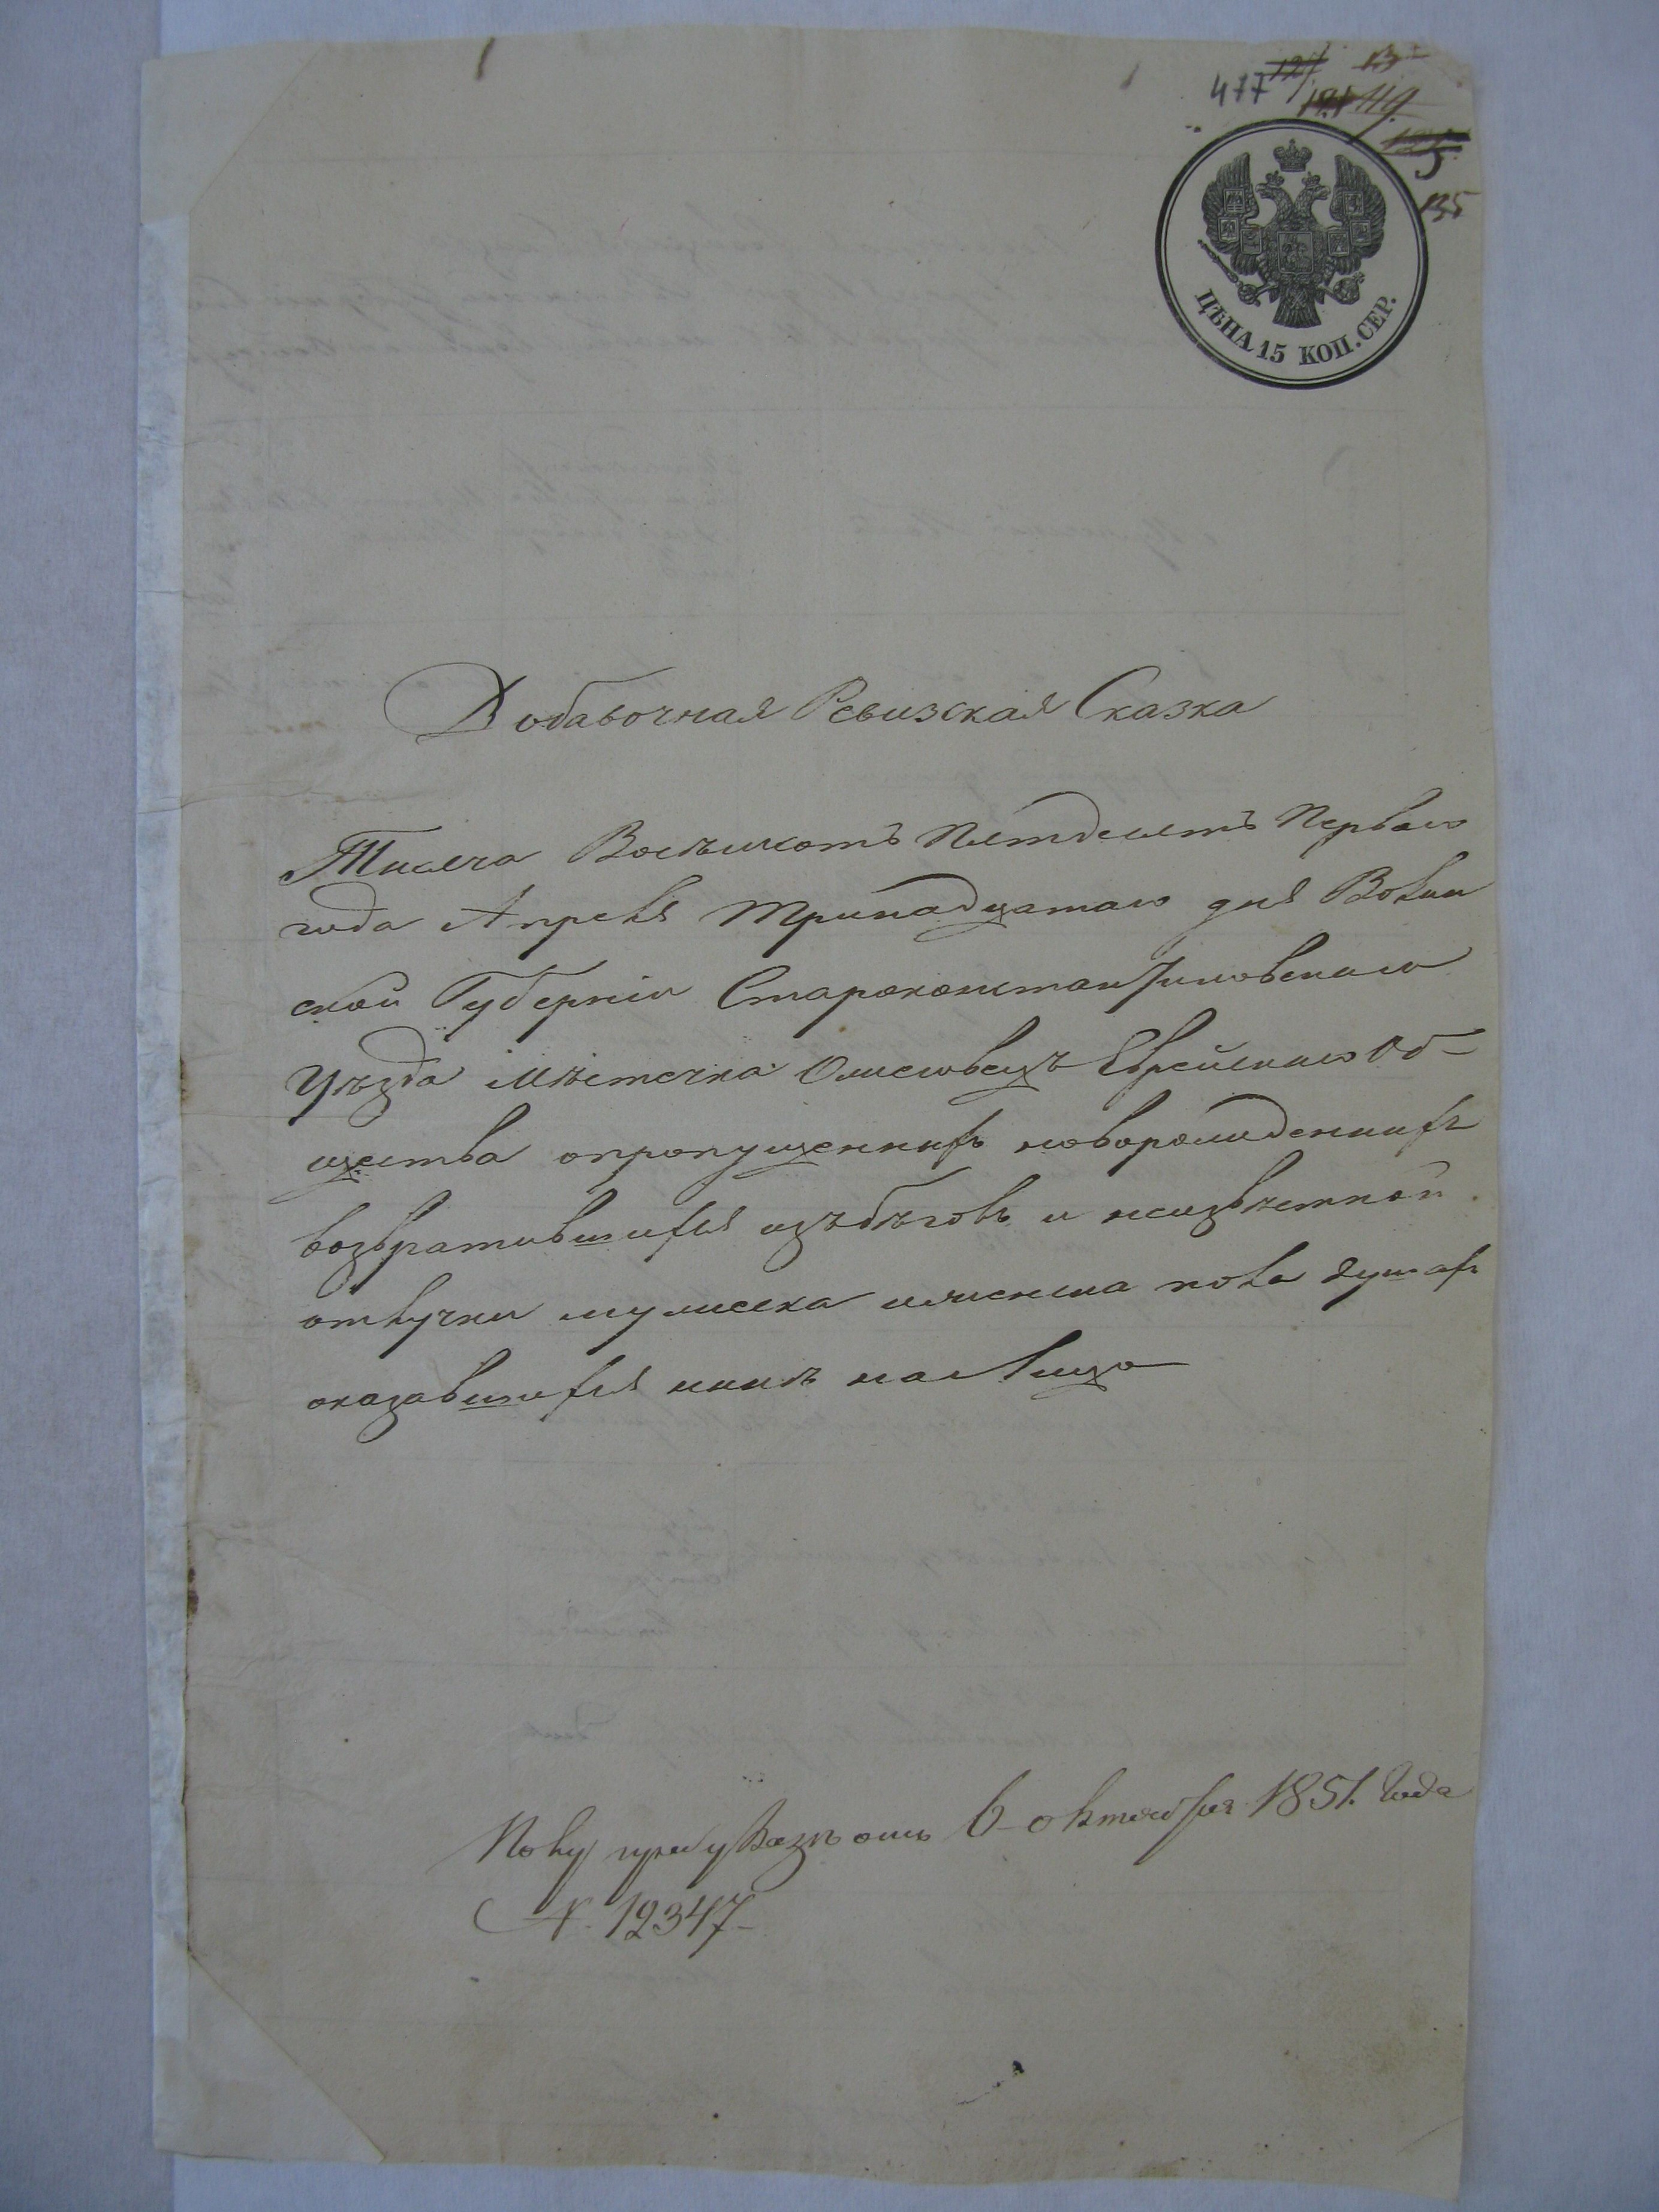 477 127 13
121 119
125
135
ЦѢНА 15 КОП. СЕР.
Добавочная Ревизская Сказка
Тисеча Восѣмсотъ Пятдесятъ Первого
года Апреля тринадцатаго дня Волин
ской Губерніи Староконстантиновскаго
Уѣзда Мѣстечка Еврейскаго Об-
щества опропущенныхъ новорожденныхъ
возвратившихся изъбѣговъ и неизвѣстной
отлучки мужеска и женска пола душахъ
оказавшихся нинѣ налицо
Получ при указѣ отъ 6 октября 1851. Года
№ 12347